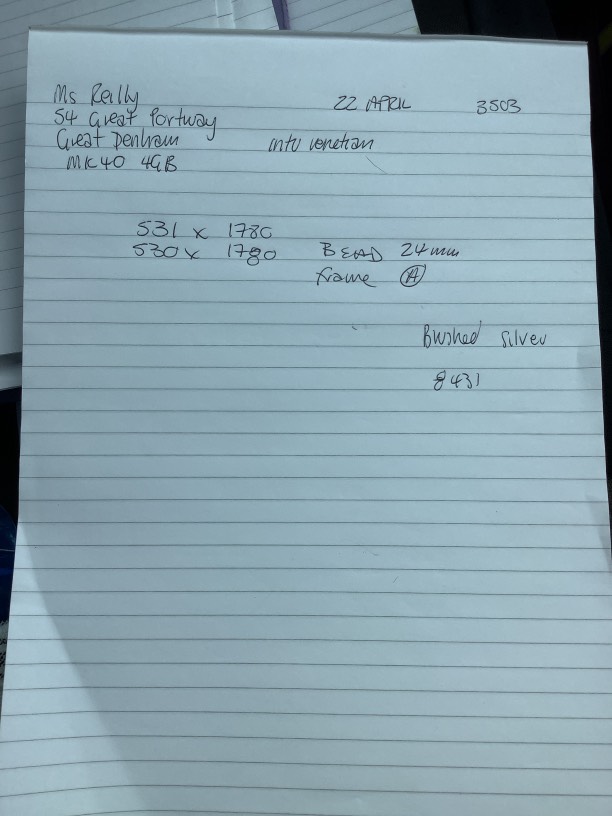 Ms Reilly 22 APRIL 3503
54 Great Portway
Great Denham intu venetian
MK40 4GB
531 x 1780
530 x 1780 BEAD 24mm
frame A
Brushed silver
8431